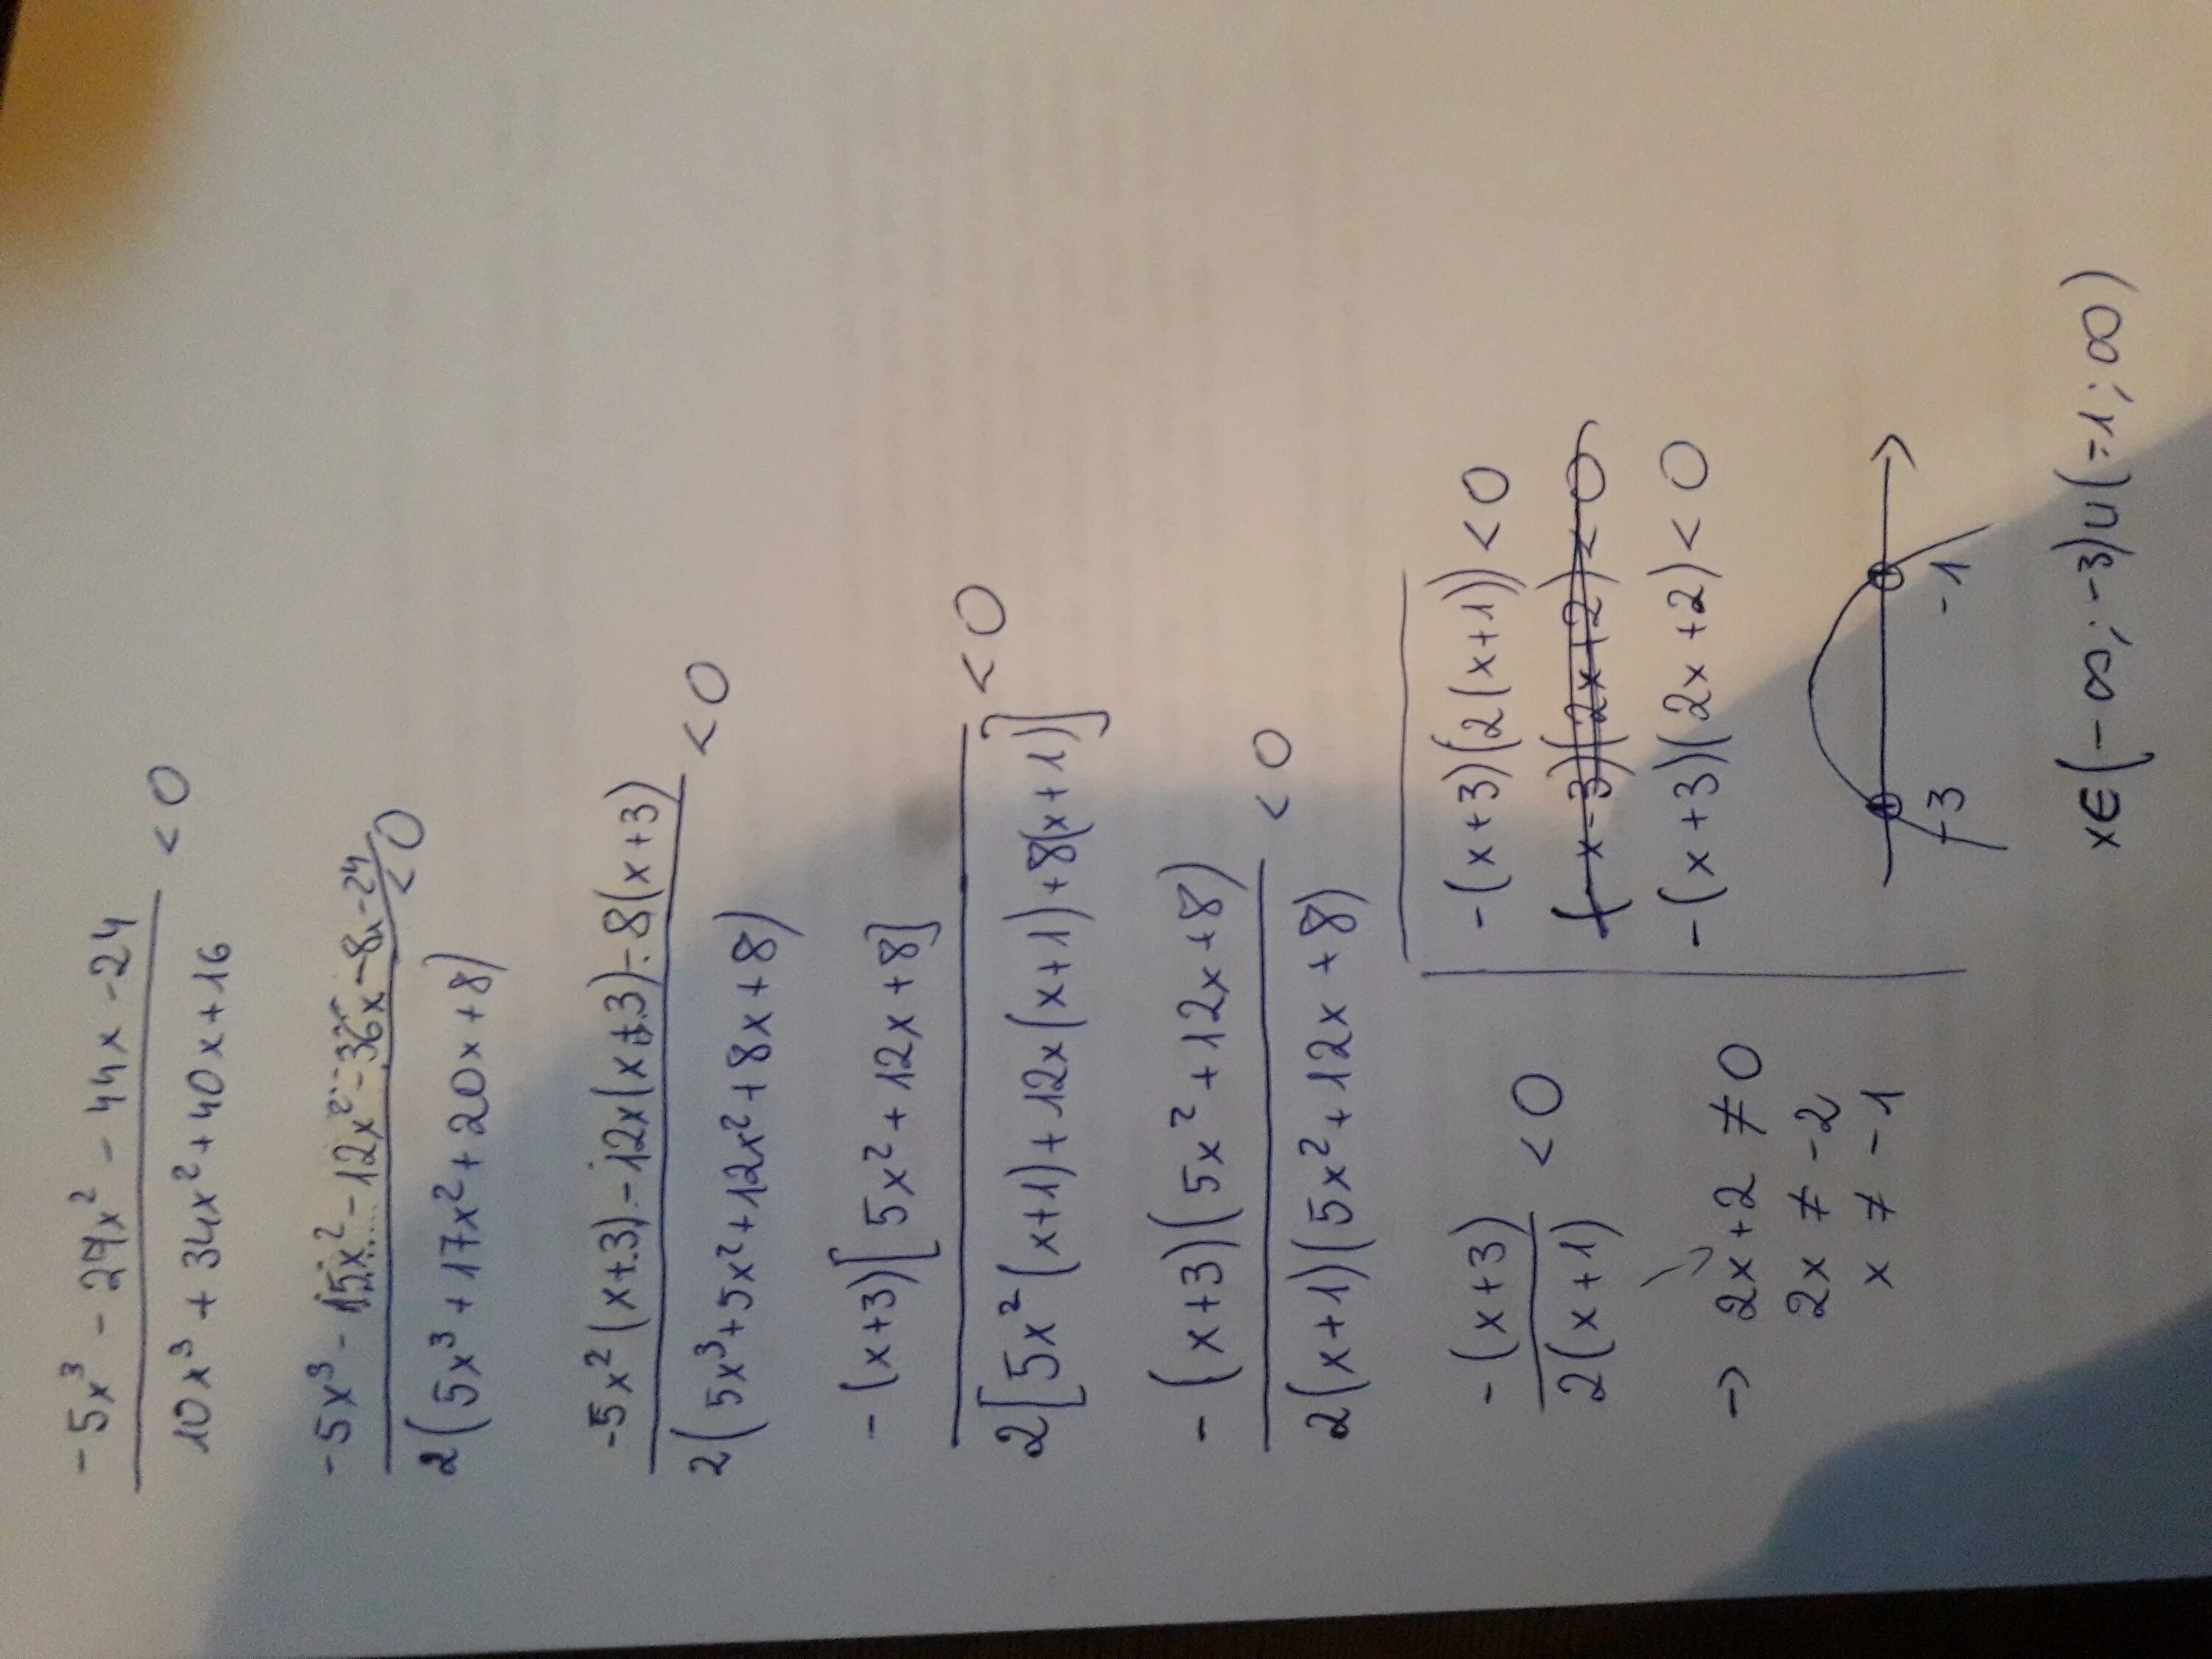 -5x³ - 27x² - 44x - 24 < 0
10x³ + 34x² + 40x + 16
-5x³ - 15x² - 12x² - 36x - 8x - 24 < 0
2(5x³ + 17x² + 20x + 8)
-5x²(x+3) - 12x(x+3) - 8(x+3) < 0
2(5x³ + 5x² + 12x² + 8x + 8)
-(x+3)[5x² + 12x + 8] < 0
2[5x²(x+1) + 12x(x+1) + 8(x+1)]
-(x+3)(5x² + 12x + 8) < 0
2(x+1)(5x² + 12x + 8)
-(x+3) < 0
2(x+1)
→ 2x+2 ≠ 0
2x ≠ -2
x ≠ -1
-(x+3)(2(x+1)) < 0
(-x-3)(2x+2) < 0
-(x+3)(2x+2) < 0
-3 -1
x∈(-∞; -3)∪(-1; ∞)